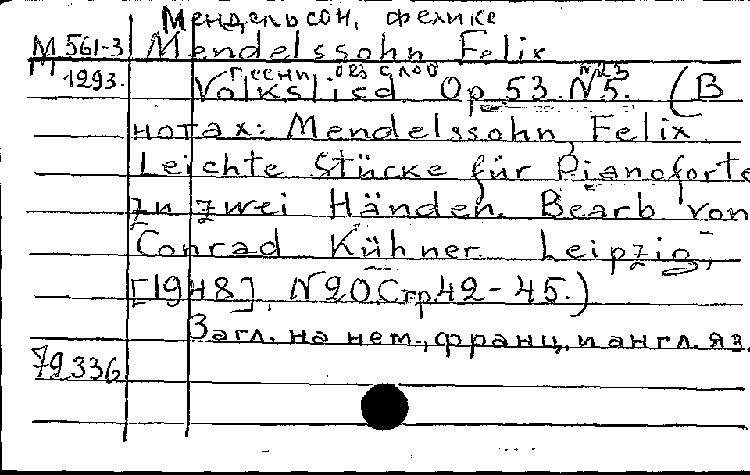 Мендельсон, Феликс
М 561-3 Mendelssohn Felix
М 1293.
Песни без слов №23
Volkslied Op 53. N5. (В
нотах: Mendelssohn, Felix.
Leichte Stücke für Pianoforte
zu zwei Händen. Bearb von
Conrad Kühner. Leipzig,
[1948], N20 Стр 42-45.)
Загл. на нем., франц. и англ. яз.
79336